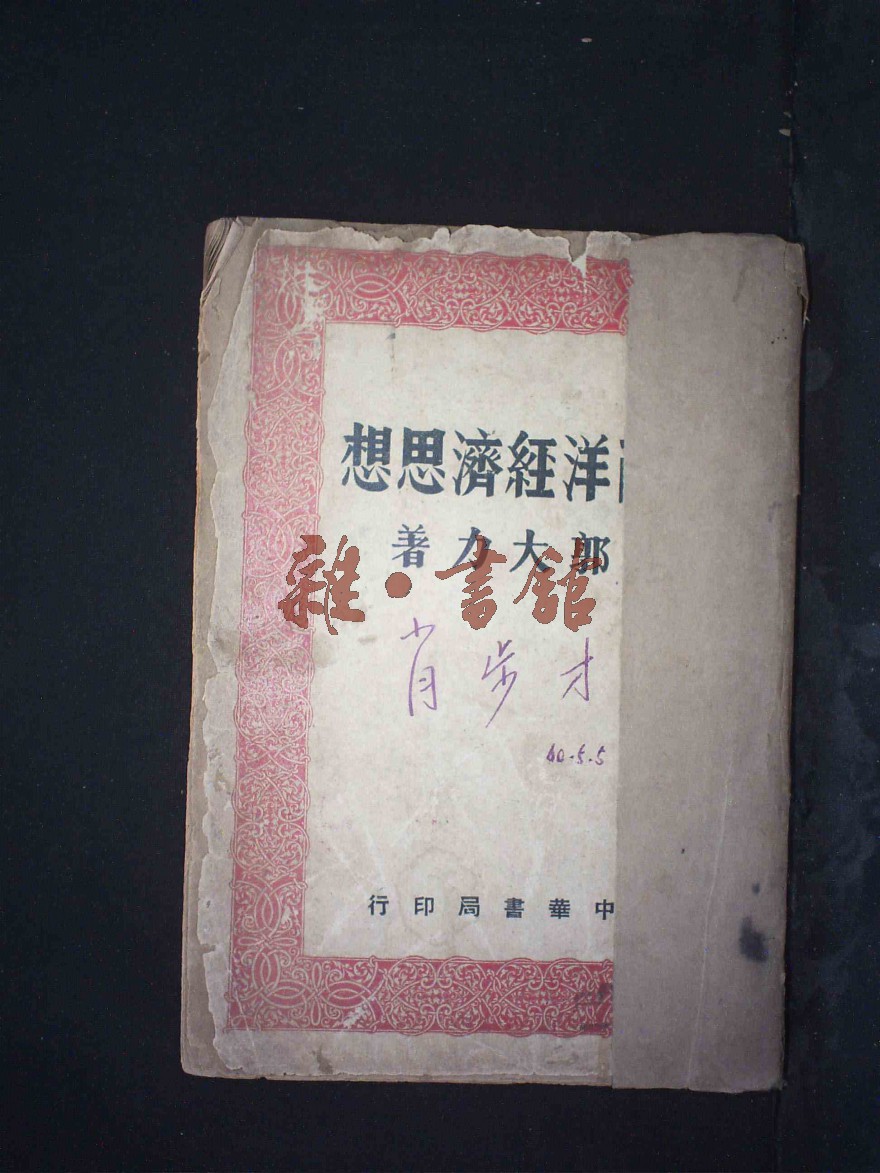 洋經濟思想
郭大力著
雜·書館
肖步才
60.5.5
中華書局印行